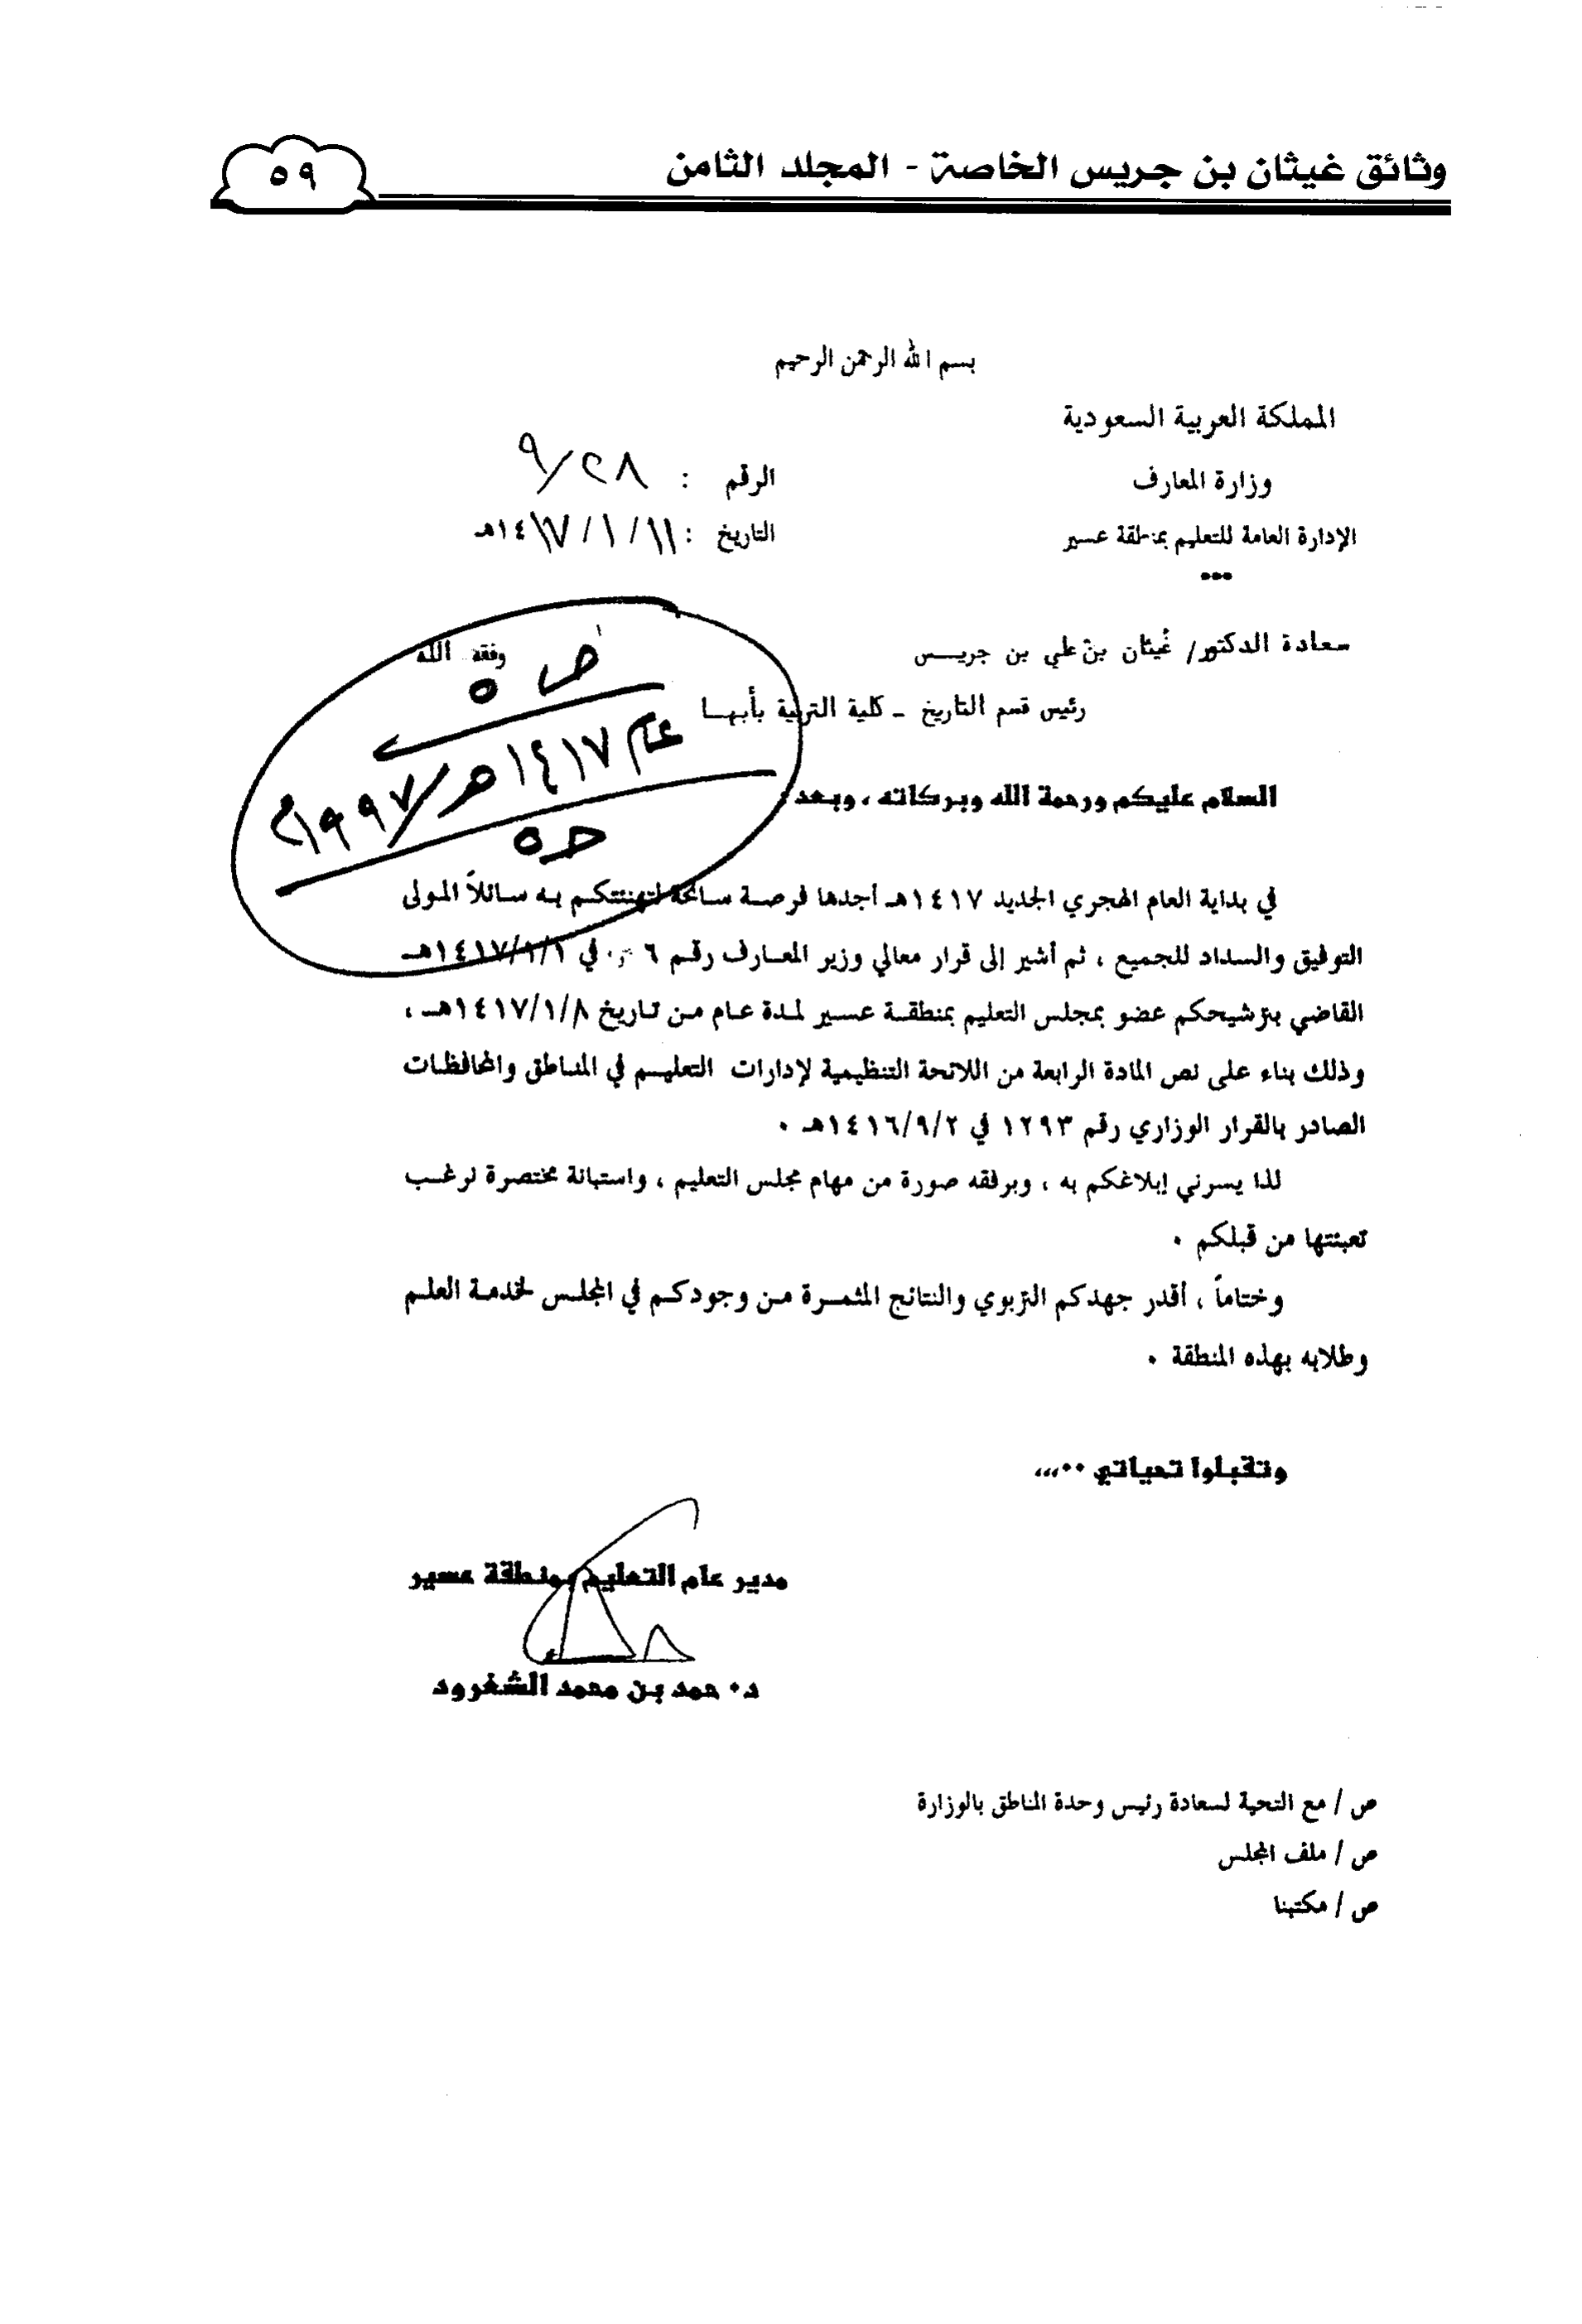 وثائق غيثان بن جريس الخاصة - المجلد الثامن
٥٩
بسم الله الرحمن الرحيم
المملكة العربية السعودية
وزارة المعارف
الرقم : ٩/٢٨
الإدارة العامة للتعليم بمنطقة عسير
التاريخ : ١١/ ١ / ١٤١٧هـ
سعادة الدكتور/ غيثان بن علي بن جريـــس وفقه الله
رئيس قسم التاريخ ـ كلية التربية بأبهـا
ص ٥
عام ١٤١٧هـ/١٩٩٧م
السلام عليكم ورحمة الله وبركاته ، وبعد
في بداية العام الهجري الجديد ١٤١٧هـ أجدها فرصـة سـانحة لتهنئتكـم بـه سـائلاً المـولى
التوفيق والسداد للجميع ، ثم أشير إلى قرار معالي وزير المعـارف رقـم في ١٤١٧/١/١هـ
القاضي بترشيحكم عضو بمجلس التعليم بمنطقـة عسـير لمـدة عـام مـن تـاريخ ١٤١٧/١/٨هـ ،
وذلك بناء على نص المادة الرابعة من اللائحة التنظيمية لإدارات التعليـم في المنـاطق والمحافظـات
الصادر بالقرار الوزاري رقم ١٢٩٣ في ١٤١٦/٩/٢هـ ٠
لذا يسرني إبلاغكم به ، وبرفقه صورة من مهام مجلس التعليم ، واستبانة مختصرة نرغـب
تعبئتها من قبلكم ٠
وختاماً ، أقدر جهدكم التربوي والنتائج المثمـرة مـن وجودكـم في المجلـس لخدمـة العلـم
وطلابه بهذه المنطقة ٠
وتقبلوا تحياتي ٠٠،،،
مدير عام التعليم بمنطقة عسير
د٠ حمد بن محمد الشغرود
ص / مع التحية لسعادة رئيس وحدة المناطق بالوزارة
ص / ملف المجلس
ص / مكتبنا